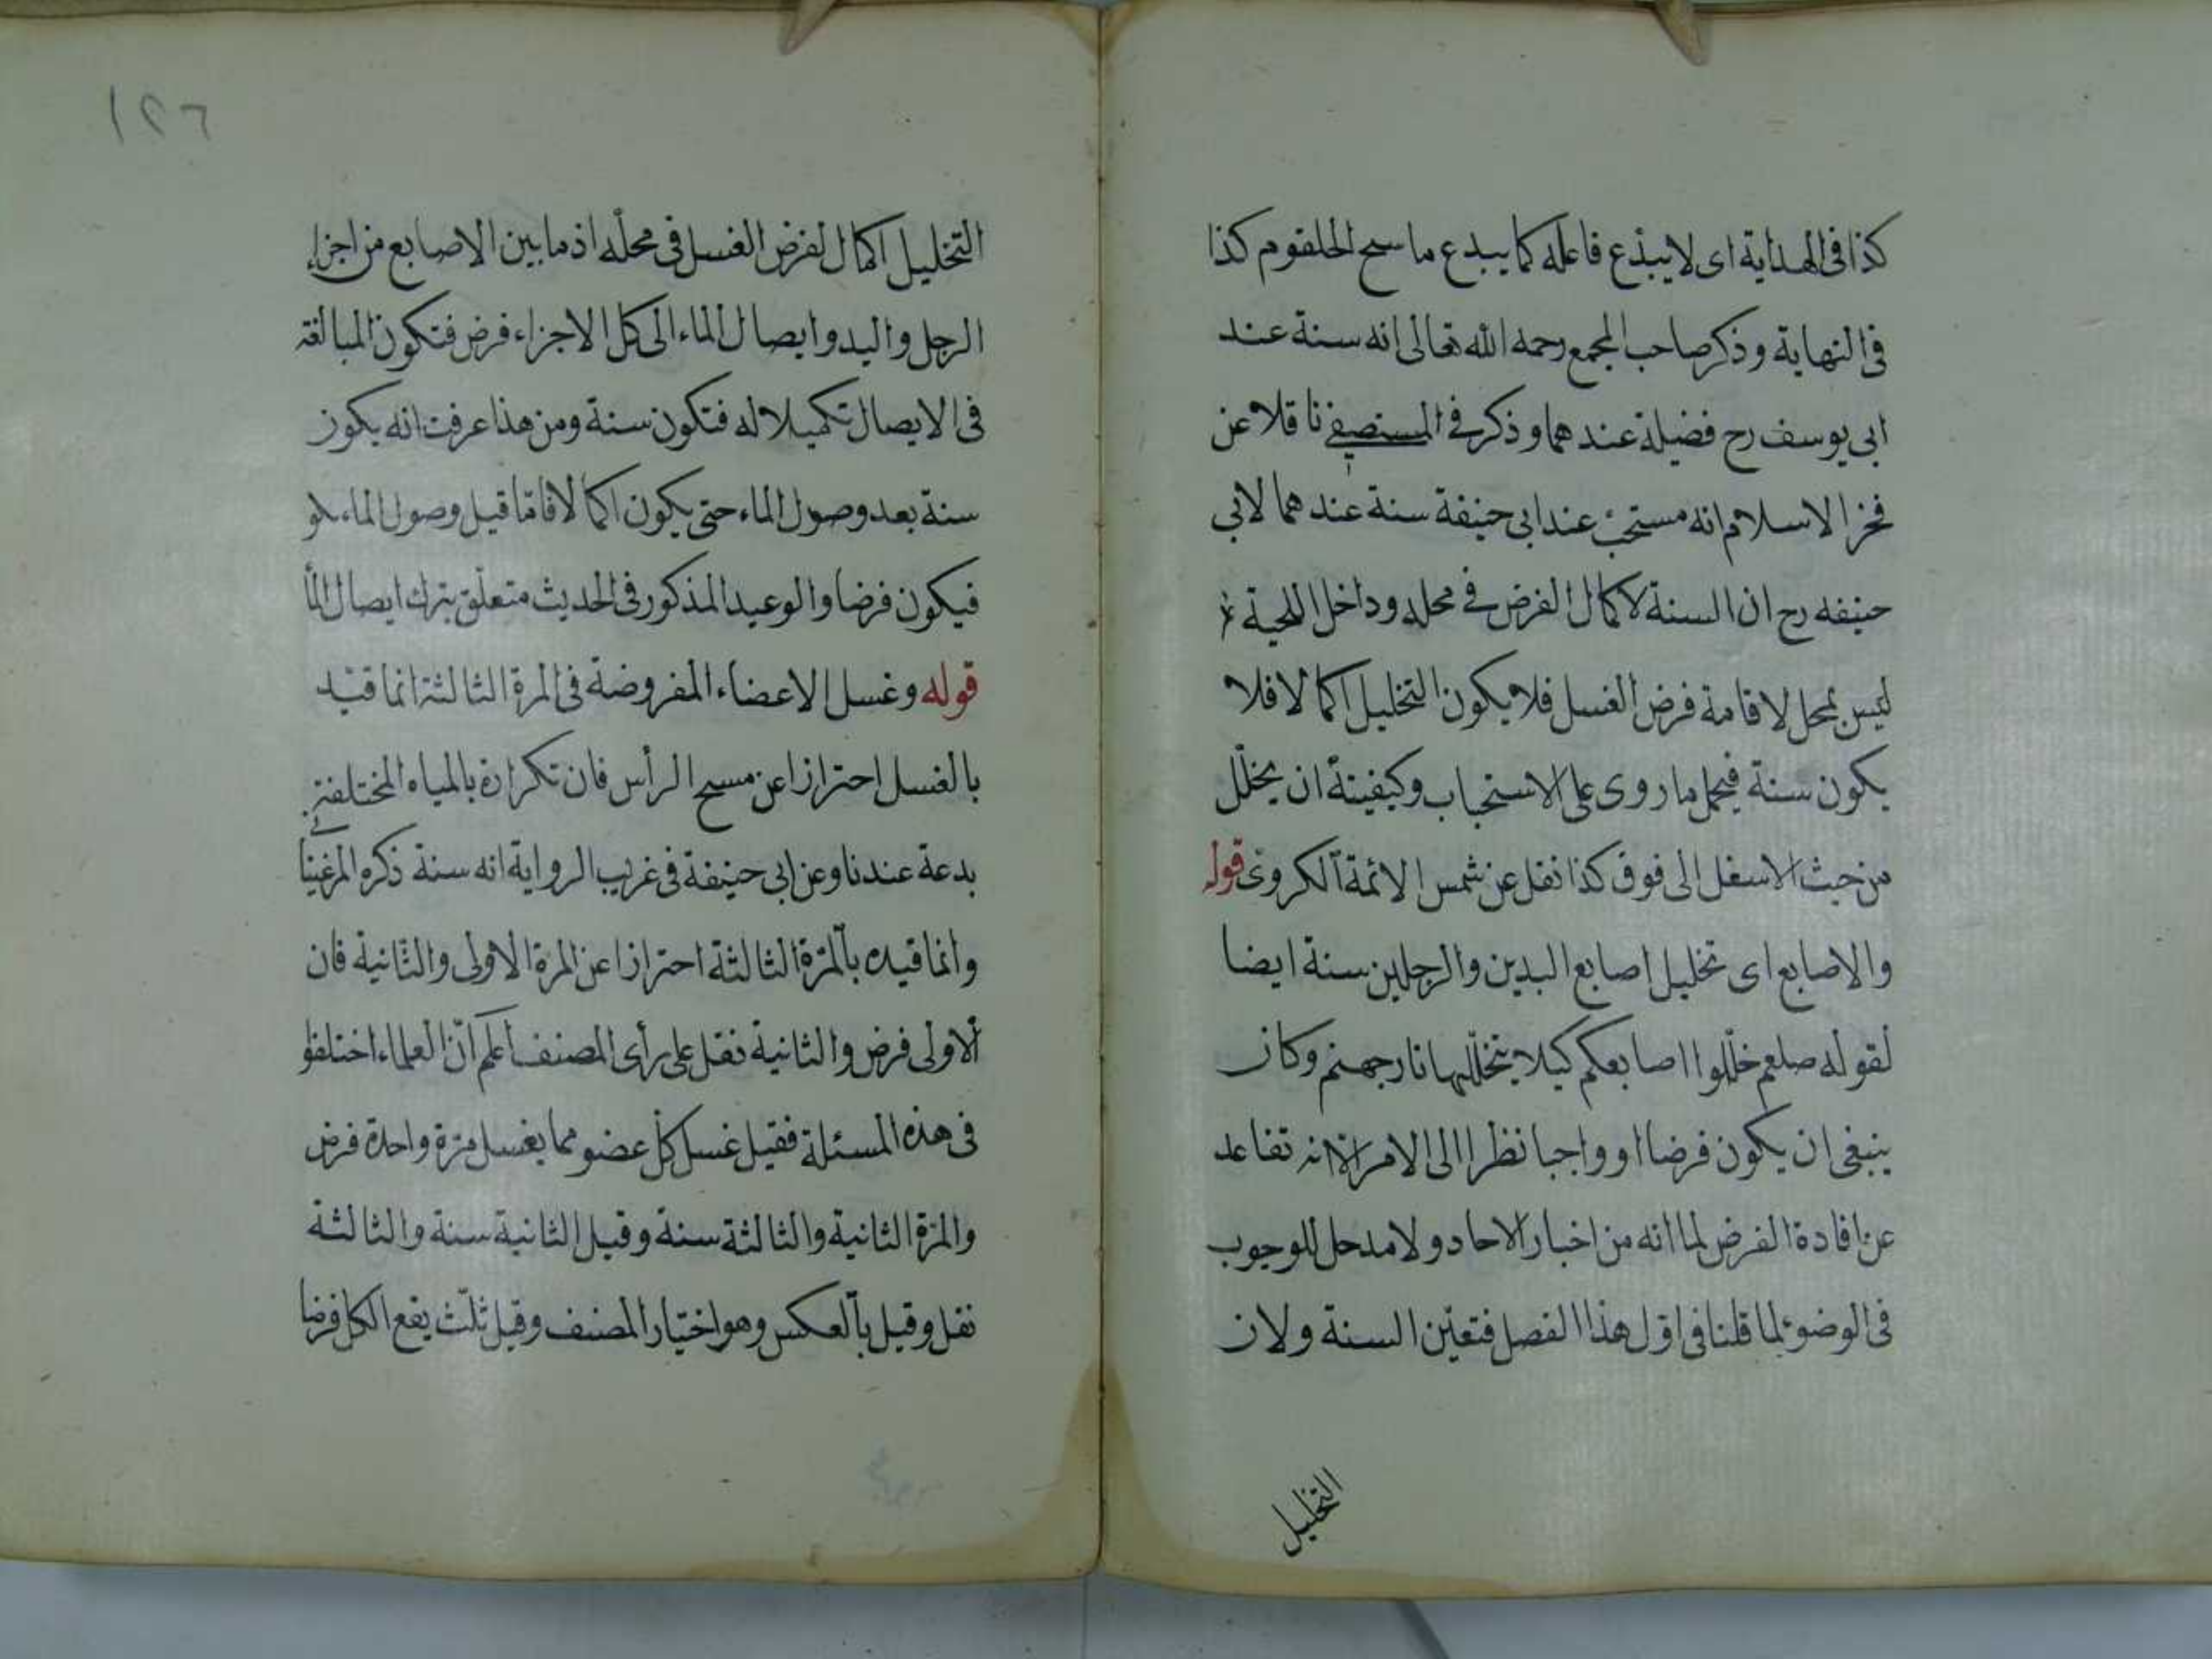 كذا فى الهداية اى لا يبدع فاعله كما يبدع ماسح الحلقوم كذا
فى النهاية وذكر صاحب المجمع رحمه الله تعالى انه سنة عند
ابى يوسف رح فضيلة عندهما وذكر فى المستصفى ناقلا عن
فخر الاسلام انه مستحب عند ابى حنيفة سنة عندهما لابى
حنيفه رح ان السنة لاكمال الفرض فى محله وداخل اللحية
ليس بمحل لاقامة فرض الغسل فلا يكون التخليل اكمالا فلا
يكون سنة فيحمل ما روى على الاستحباب وكيفيته ان يخلّل
من حيث الاسفل الى فوق كذا نقل عن شمس الائمة الكروى قوله
والاصابع اى تخليل اصابع اليدين والرجلين سنة ايضا
لقوله صلعم خلّلوا اصابعكم كيلا يتخلّلها نار جهنم وكان
ينبغى ان يكون فرضا او واجبا نظرا الى الامر الا انه تقاعد
عن افادة الفرض لما انه من اخبار الاحاد ولا مدحل للوجوب
فى الوضوء لما قلنا فى اوّل هذا الفصل فتعيّن السنة ولان
التخليل
١٢٦
التخليل اكمال لفرض الغسل فى محلّه اذ ما بين الاصابع من اجزاء
الرجل واليد وايصال الماء الى كل الاجزاء فرض فتكون المبالغة
فى الايصال تكميلا له فتكون سنة ومن هذا عرفت انه يكون
سنة بعد وصول الماء حتى يكون اكمالا فاما قبل وصول الماء
فيكون فرضا والوعيد المذكور فى الحديث متعلّق بترك ايصال الما
قوله وغسل الاعضاء المفروضة فى المرة الثالثة انما قيّد
بالغسل احترازا عن مسح الرأس فان تكراره بالمياه المختلفة
بدعة عندنا وعن ابى حنيفة فى غريب الرواية انه سنة ذكره المرغينا
وانما قيده بالمرّة الثالثة احترازا عن المرة الاولى والثانية فان
الاولى فرض والثانية نفل على رأى المصنف اعلم انّ العلماء اختلفوا
فى هذه المسئلة فقيل غسل كل عضو مما يغسل مرّة واحدة فرض
والمرّة الثانية والثالثة سنة وقيل الثانية سنة والثالثة
نفل وقيل بالعكس وهو اختيار المصنف وقيل ثلّث يقع الكل فرضا